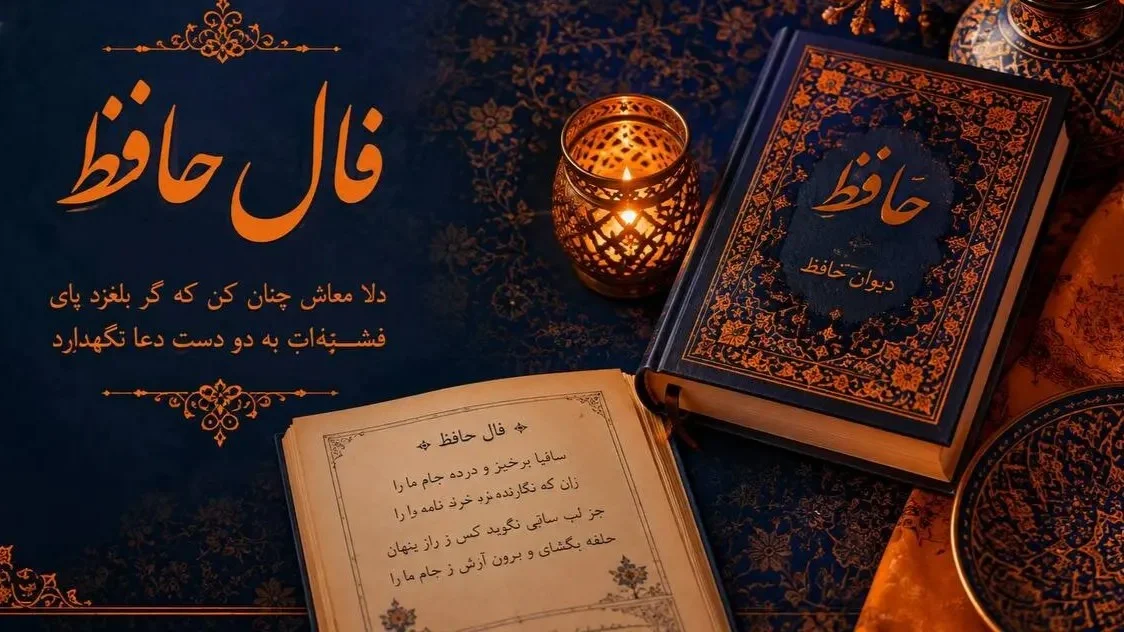 فال حافظ
دلا معاش چنان کن که گر بلغزد پای
به دو دست دعا
حافظ
دیوان حافظ
فال حافظ
ساقیا برخیز و درده جام ما را
زان که نگارنده خرد نامه را
جز لب ساتی نگوید کس ز راز پنهان
حلفه بگشای و برون آرش ز جام ما را